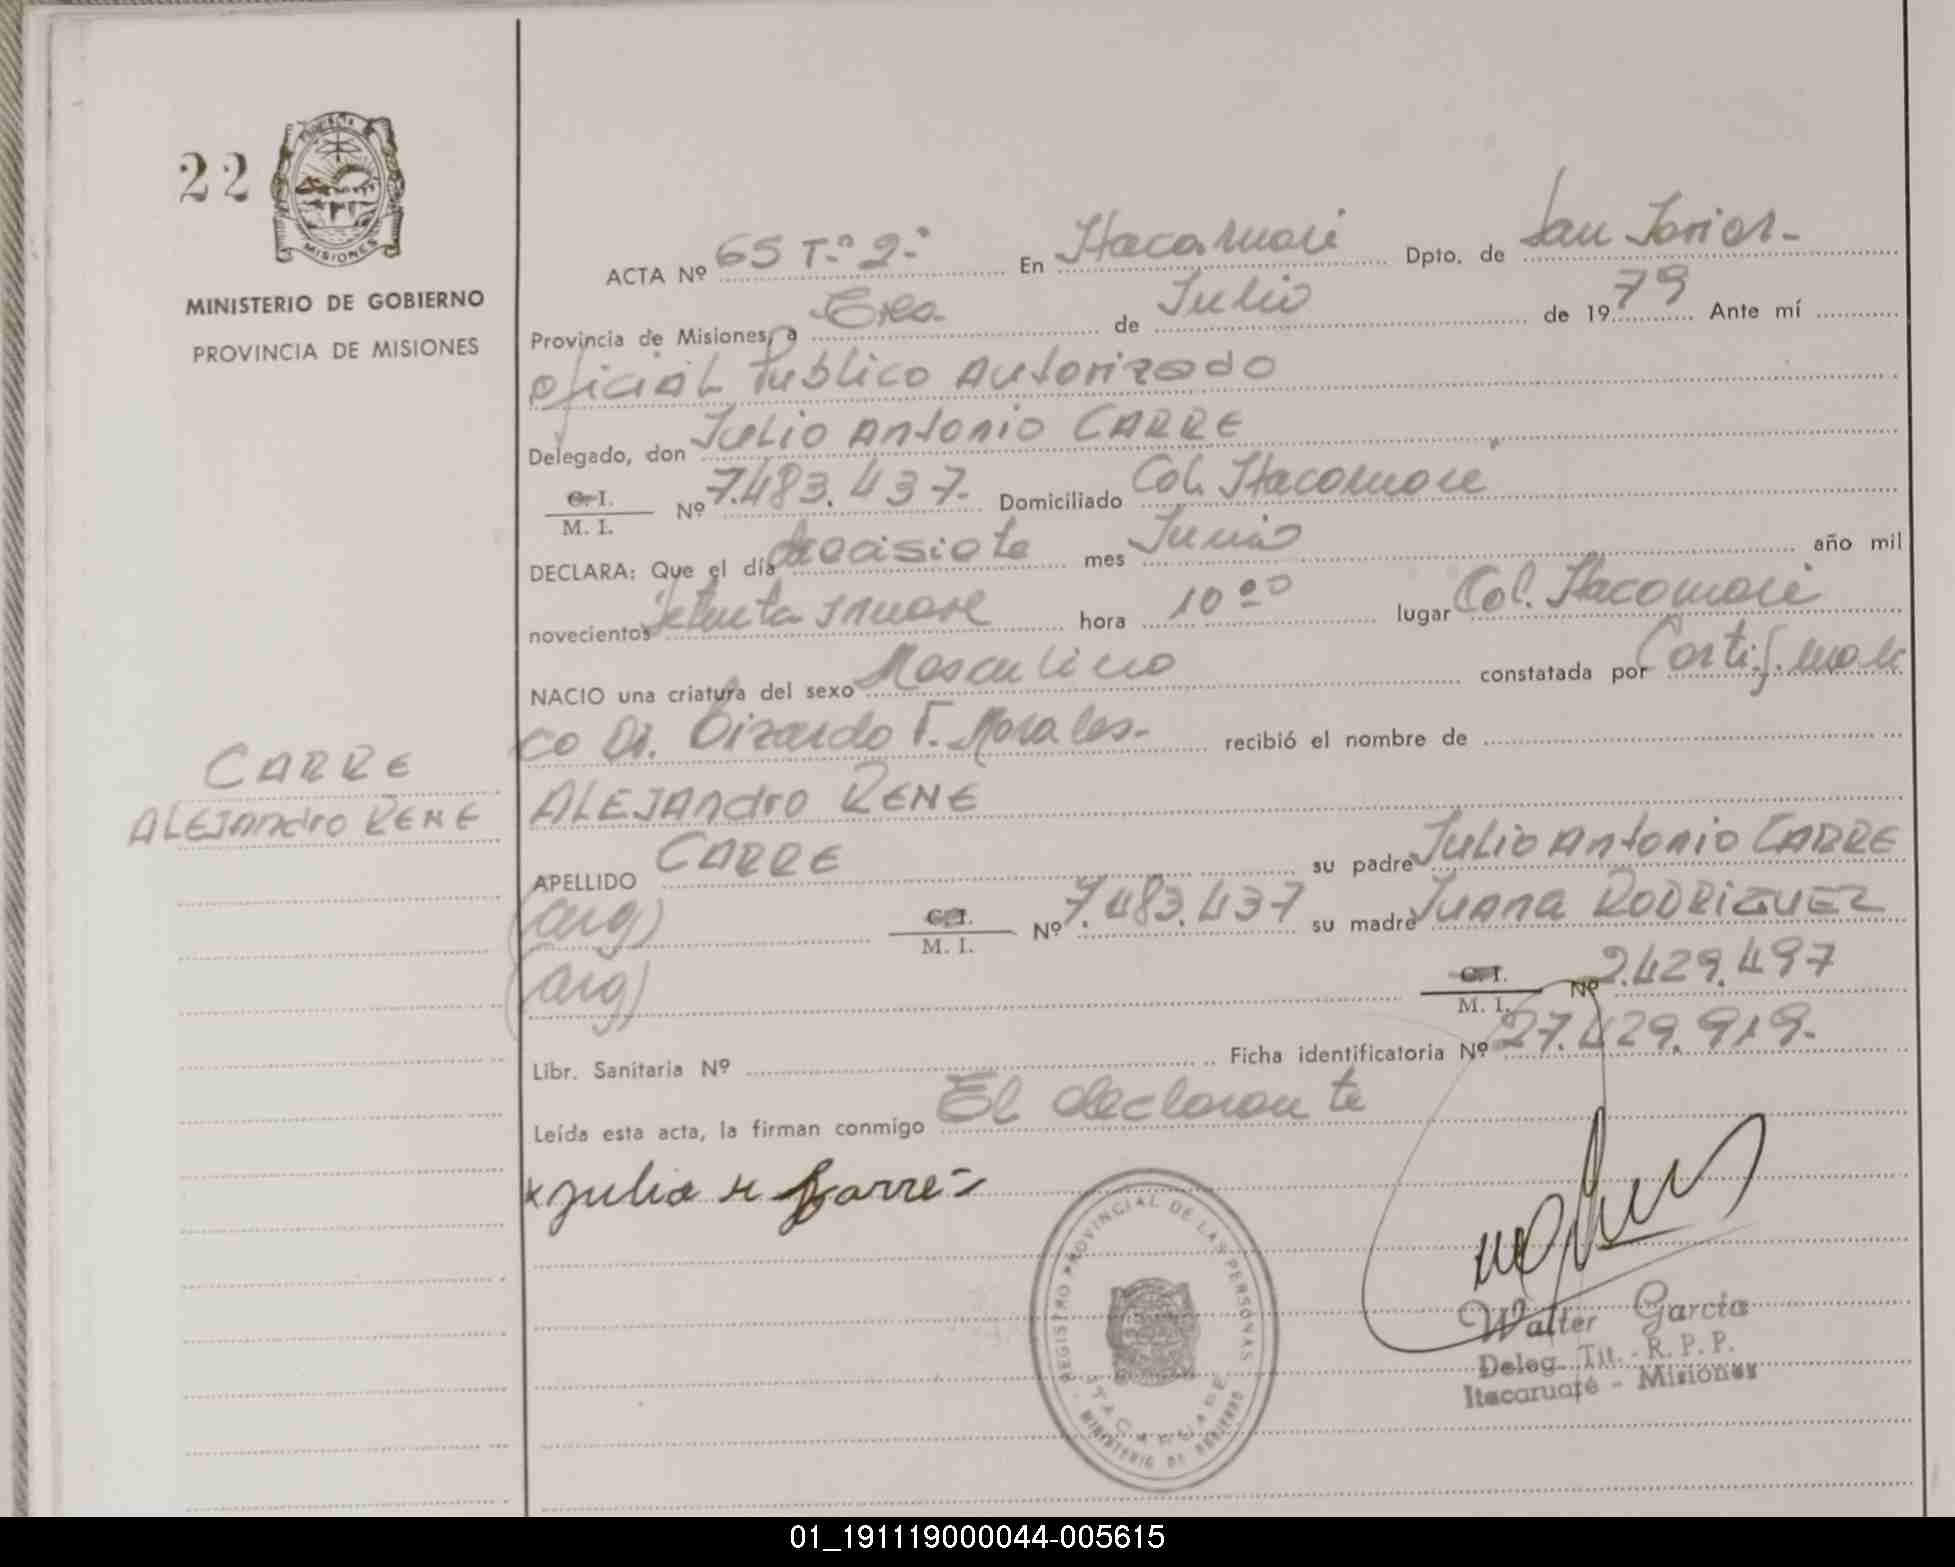 22
MINISTERIO DE GOBIERNO
PROVINCIA DE MISIONES
MISIONES
ACTA Nº 65 Tº 2º En Itacaruaré Dpto. de San Javier-
Provincia de Misiones, a Tres de Julio de 1979 Ante mí
Oficial Publico Autorizado
Delegado, don Julio Antonio CARRE
C. I.
M. I. Nº 7.483.437- Domiciliado Col. Itacaruare
DECLARA: Que el día diecisiete mes Junio año mil
novecientos setenta y nueve hora 10 00 lugar Col. Itacaruaré
NACIO una criatura del sexo Masculino constatada por Certif. médi
co Dr. F. Morales- recibió el nombre de
CARRE
ALEJAndro RENE
ALEJAndro RENE
APELLIDO CARRE su padre Julio Antonio CARRE
(arg) C. I.
M. I. Nº 7.483.437 su madre Juana RODRIGUEZ
(arg) C. I.
M. I. Nº 2.429.497
Libr. Sanitaria Nº Ficha identificatoria Nº 27.429.919-
Leída esta acta, la firman conmigo El declarante
x julio A Carre
REGISTRO PROVINCIAL DE LAS PERSONAS
ITACARUARE
MINISTERIO DE GOBIERNO
Walter García
Deleg. Tit. - R. P. P.
Itacaruaré - Misiones
01_191119000044-005615